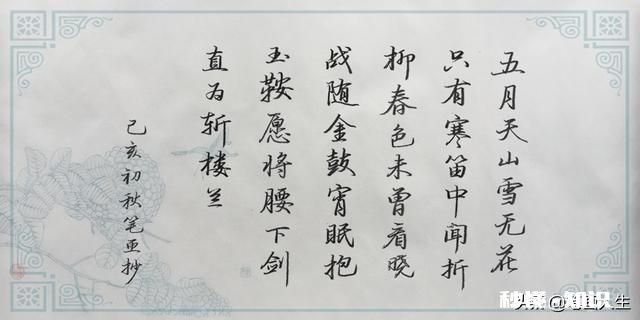 五月天山雪无花
只有寒笛中闻折
柳春色未曾看晓
战随金鼓宵眠抱
玉鞍愿将腰下剑
直为斩楼兰
己亥初秋笔抄
秒懂知识